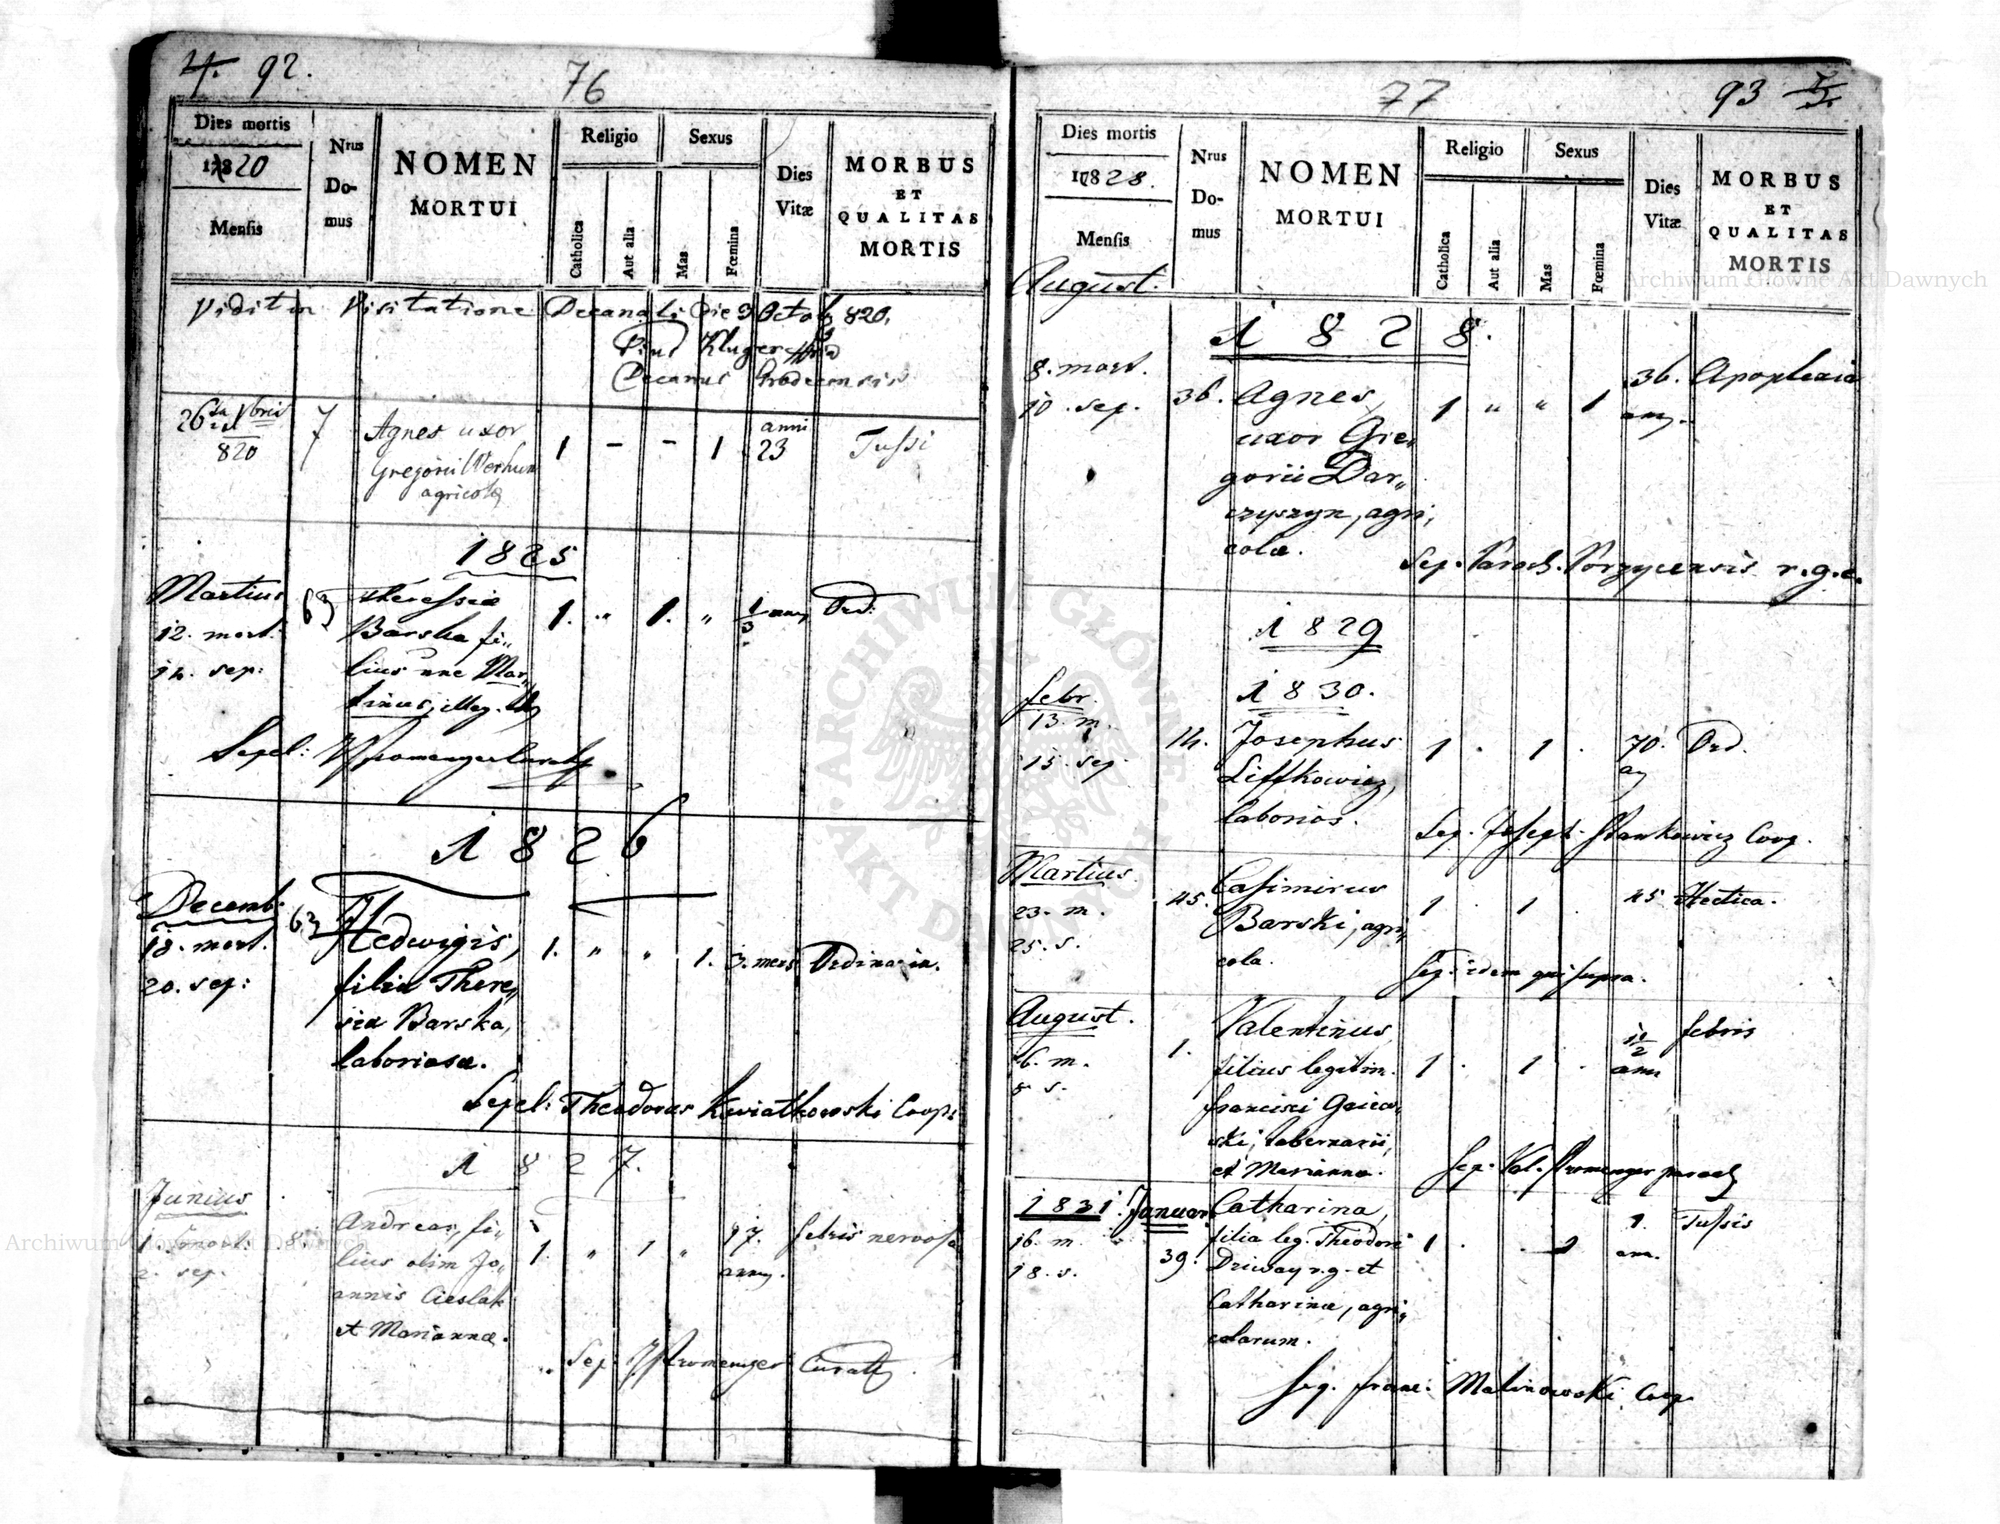 4. 92.
76
Dies mortis
1820
Mensis
Nrus
Do-
mus
NOMEN
MORTUI
Religio
Catholica
Aut alia
Sexus
Mas
Fœmina
Dies
Vitæ
MORBUS
ET
QUALITAS
MORTIS
Vidit in Visitatione Decanali Die 9 Octob 820.
Pius Kluger
Decanus Grodecensis
26ta Xbris
820
7
Agnes uxor
Gregorii Werhun
agricolæ
1 - - 1
anni
23
Tussi
1825
Martius
12. mort.
14. sep:
63
Theressiæ
Barska fi„
lius nne Mar„
tinus, illeg.
1. „ 1. „
1/3 anny
Ord:
Sepel: Stromenger
1826
Decemb.
18. mort.
20. sep:
63
Hedwigis,
filia There„
siæ Barska,
laboriosæ.
1. „ „ 1.
3. mens
Ordinaria.
Sepel: Theodorus Kwiatkowski Coop:
1827.
Junius
1. mort.
2. sep.
8.
Andreas, fi„
lius olim Jo„
annis Cieslak
et Mariannæ.
1. „ 1 „
17.
anny.
febris nervosa
Sep: Stromenger Curatt
77
93
Dies mortis
1828.
Mensis
Nrus
Do-
mus
NOMEN
MORTUI
Religio
Catholica
Aut alia
Sexus
Mas
Fœmina
Dies
Vitæ
MORBUS
ET
QUALITAS
MORTIS
August.
1828.
8. mort.
10. sep.
36.
Agnes,
uxor Gre„
gorii Dar„
czyszyn, agri„
colæ.
1 „ „ 1
36.
any.
Apoplexia
Sep. Paroch. Porzycensis r.g.c.
1829
1830.
febr.
13. m.
15. sep.
14.
Josephus
Liffkowicz,
laborios.
1 . 1 .
70.
ay
Ord.
Sep. Joseph Stankowicz Coop.
Martius
23. m.
25. s.
45.
Casimirus
Barski, agri„
cola.
1 . 1 .
45
Hectica.
Sep. idem qui supra.
August.
6. m.
8 s.
1.
Valentinus,
filius legitim.
Francisci
ski, tabernarii,
et Mariannæ.
1 . 1 .
1/2
ann
febris
Sep. Val. Stromenger paroch
1831. Januar.
16. m.
18. s.
39.
Catharina,
filia leg. Theodori
Driway r.g. et
Catharinæ, agri„
colarum.
1 . . 1
1.
ann.
Tussis
Sep. Franc: Malinowski Coop.
Archiwum Główne Akt Dawnych
Archiwum Główne Akt Dawnych
ARCHIWUM GŁÓWNE AKT DAWNYCH